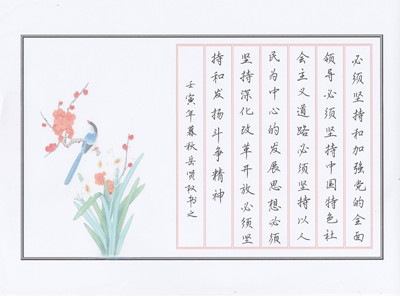 必须坚持和加强党的全面
领导必须坚持中国特色社
会主义道路必须坚持以人
民为中心的发展思想必须
坚持深化改革开放必须坚
持和发扬斗争精神
壬寅年暮秋岳
书之